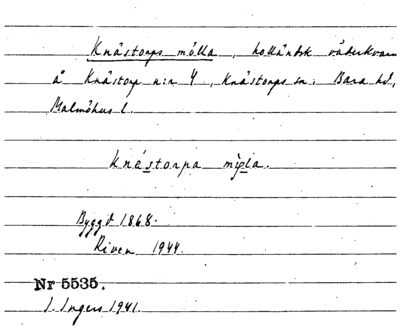 Knästorps mölla, holländsk väderkvarn
å Knästorp n:r 4, Knästorps sn. Bara hd,
Malmöhus l.
Knästorpa mø̨la.
Byggd 1868.
Riven 1944.
Nr 5535.
I. Ingers 1941.